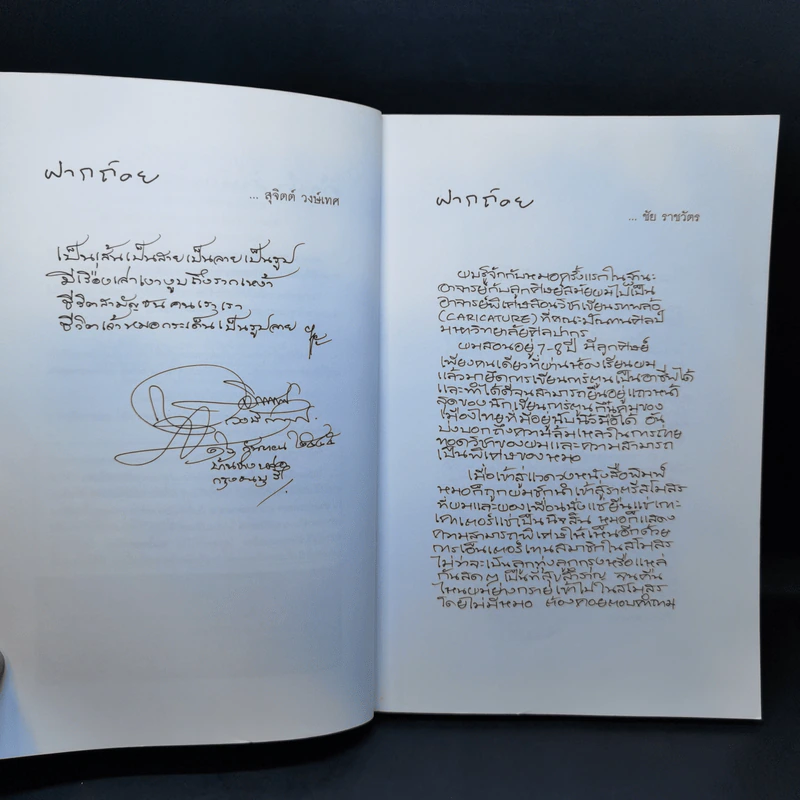 ฝากถ้อย
... สุจิตต์ วงษ์เทศ
เป็นเส้นเป็นสายเป็นลายเป็นรูป
มีเรื่องเล่าเงางูบถึงรากเหง้า
ชีวิตสามัญชน คนเราเรา
ชีวิตเจ้าหมอกระเด็นเป็นรูปลาย
กรุงธนบุรี
ฝากถ้อย
... ชัย ราชวัตร
ผมรู้จักกับหมอครั้งแรกในฐานะ
อาจารย์กับลูกศิษย์สมัยผมไปเป็น
อาจารย์พิเศษสอนวิชาเขียนภาพล้อ
(CARICATURE) ที่คณะมัณฑนศิลป์
มหาวิทยาลัยศิลปากร
ผมสอนอยู่ 7-8 ปี มีลูกศิษย์
เพียงคนเดียวที่ผ่านห้องเรียนผม
แล้วมายึดการเขียนการ์ตูนเป็นอาชีพได้
และทำได้ดีจนสามารถยืนอยู่แถวหน้า
สุดของนักเขียนการ์ตูนกันคุมของ
เมืองไทยที่มีอยู่นับนิ้วมือได้ อัน
บ่งบอกถึงความล้มเหลวในการถ่าย
ทอดวิชาของผมและความสามารถ
เป็นพิเศษของหมอ
เมื่อเข้าสู่แวดวงหนังสือพิมพ์
หมอก็ถูกผมชักนำเข้าสู่ราตรีสโมสร
ที่ผมและผองเพื่อนนั่งแช่ยืนแช่เกาะ
เคาเตอร์แช่เป็นนิจสิน หมอก็แสดง
ความสามารถพิเศษให้เห็นอีกด้วย
การเอ็นเตอร์เทนสมาชิกในสโมสร
ไม่ว่าจะเป็นลูกทุ่งลูกกรุงหรือแหล่
กันสดๆ เป็นที่สุขสำราญ จนคืน
ไหนผมย่างกรายเข้าไปในสโมสร
โดยไม่มีหมอ ต้องคอยตอบคำถาม